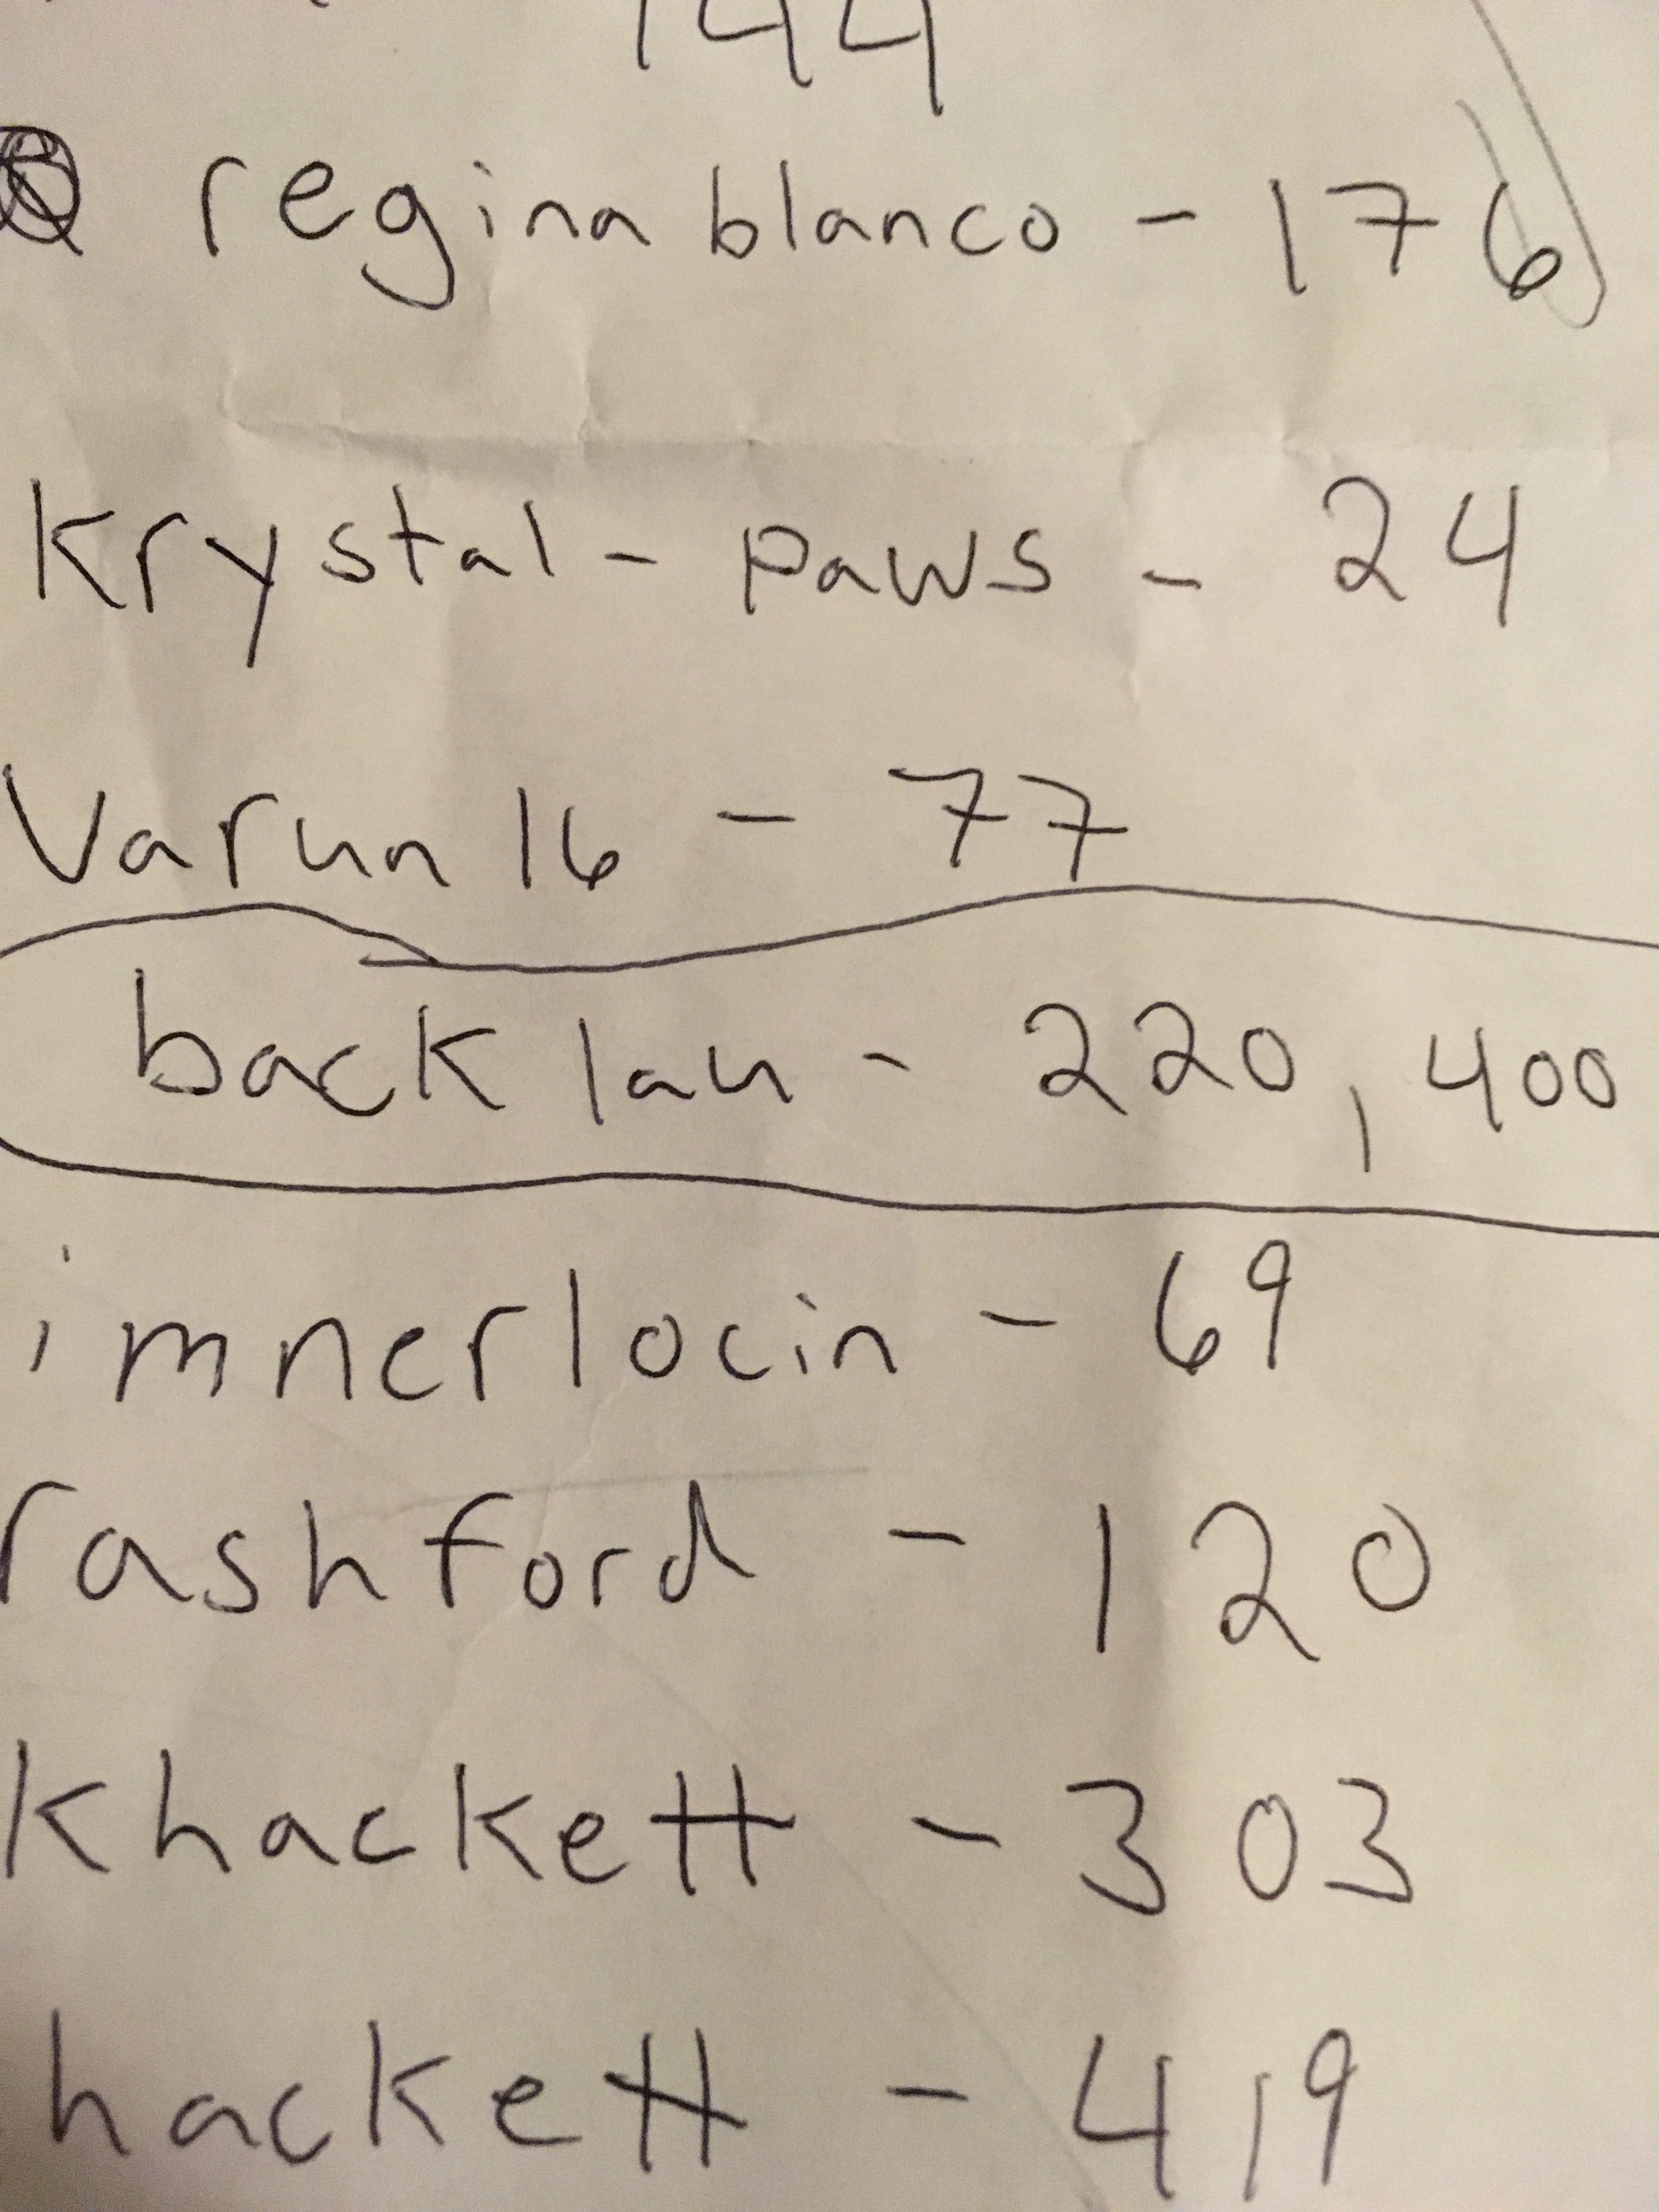 144
regina blanco - 176
Krystal - paws - 24
Varun 16 - 77
back lau - 220, 400
imnerlocin - 69
rashford - 120
Khackett - 303
hackett - 419